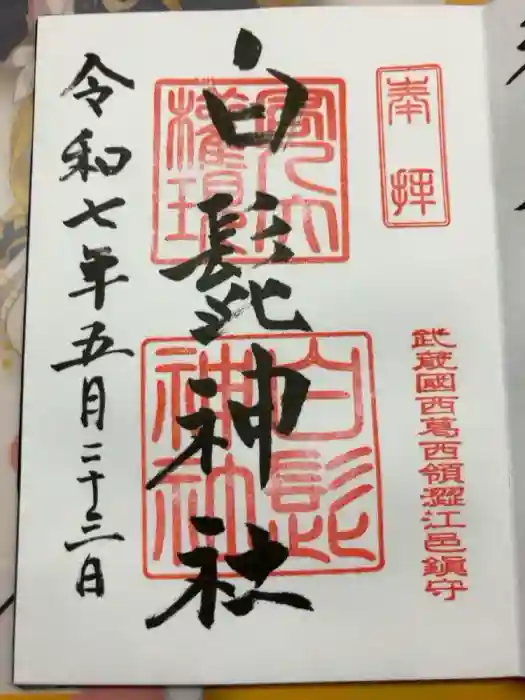 奉拝
武蔵國西葛西領澀江邑鎮守
白髭神社
人大
權現
白髭
神社
令和七年五月二十三日